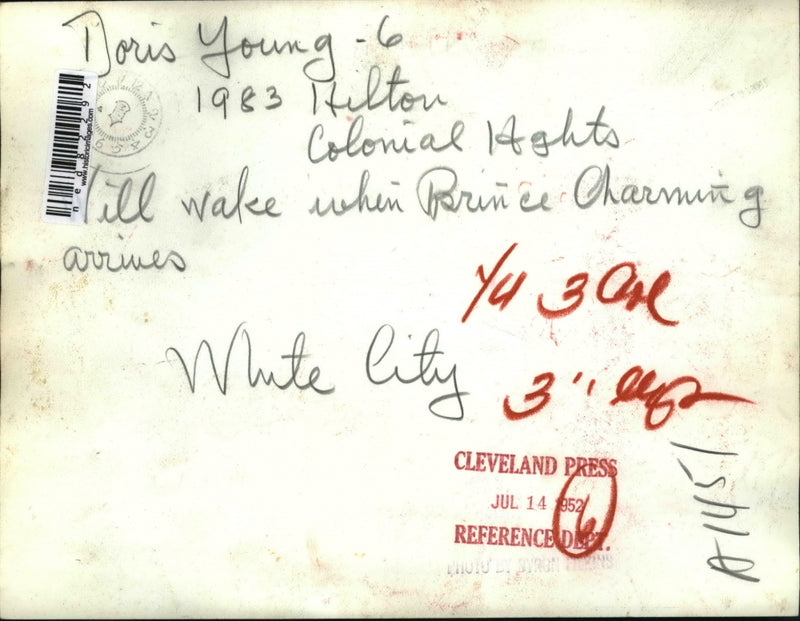 Doris Young - 6
1983 Hilton
Colonial Hghts
Will wake when Prince Charming
arrives
White City
3 Col
3"
CLEVELAND PRESS
JUL 14 1952
REFERENCE DEPT.
6
A1451
ned82292
www.historicimages.com